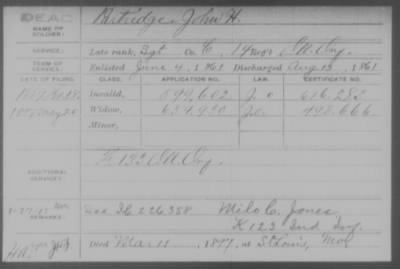 DEAD
NAME OF SOLDIER: Petridge John H.
SERVICE: Late rank, Sgt Co. C, 14 Reg't Ind. Inf.
TERM OF SERVICE: Enlisted June 4, 1861 Discharged Aug 13, 1861
DATE OF FILING. CLASS. APPLICATION NO. LAW. CERTIFICATE NO.
Invalid, 599,602 616.283
Widow, 654,930 493.666
Minor,
ADDITIONAL SERVICES: F 132 Ind. Inf.
REMARKS: 226358 Milo C. Jones
K 123 Ind Inf.
Died Mar 11, 1897, at St Louis, Mo